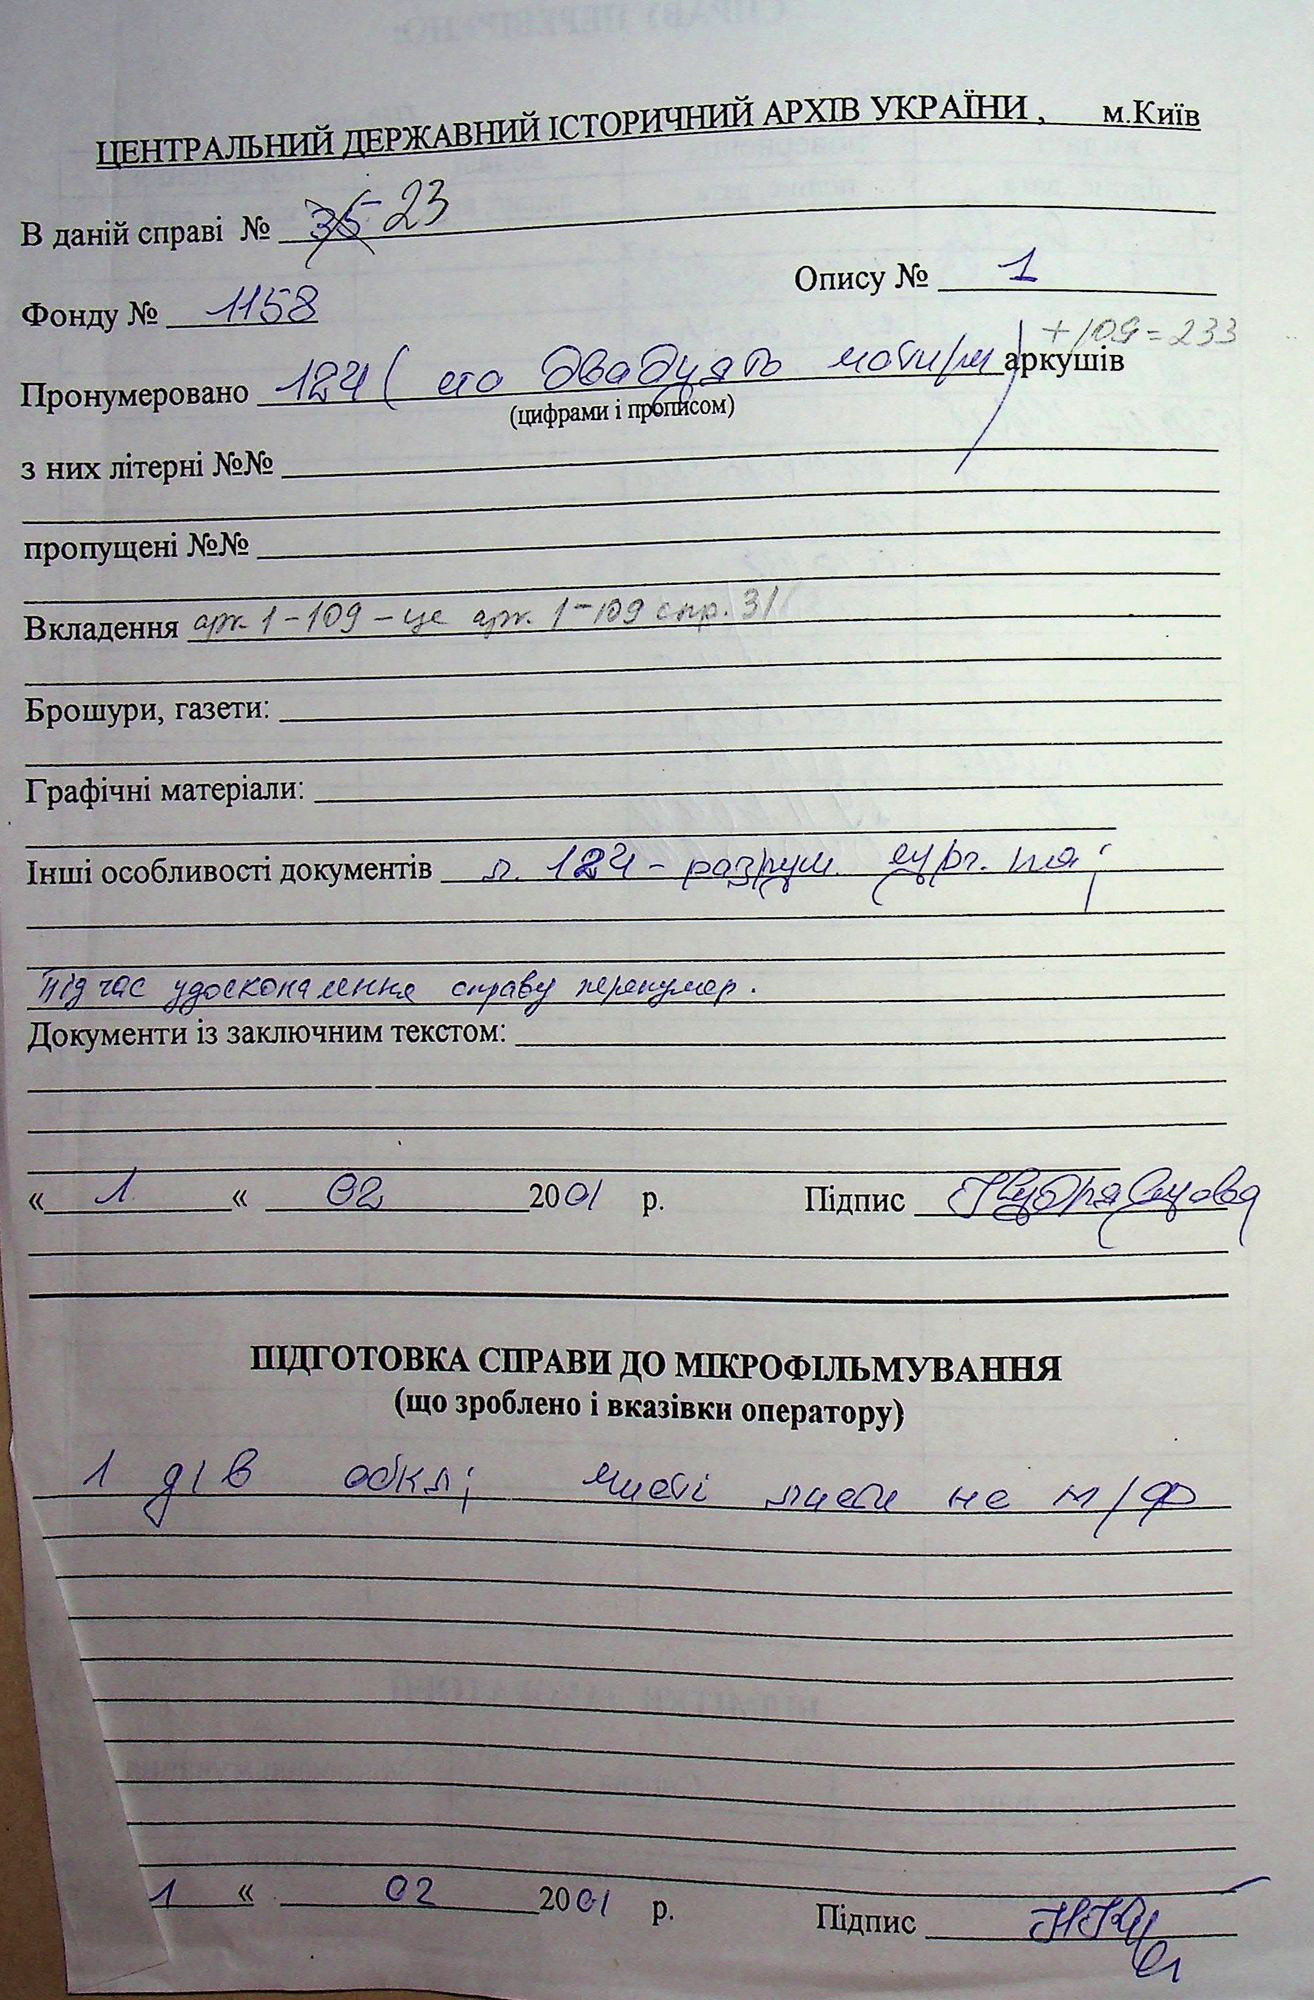 ЦЕНТРАЛЬНИЙ ДЕРЖАВНИЙ ІСТОРИЧНИЙ АРХІВ УКРАЇНИ , м.Київ
В даній справі № 35 23
Опису № 1
Фонду № 1158
+109=233
Пронумеровано 124 ( сто двадцять чотири ) аркушів
(цифрами і прописом)
з них літерні №№
пропущені №№
Вкладення арк 1-109 - це арк. 1-109 спр. 31
Брошури, газети:
Графічні матеріали:
Інші особливості документів л. 124 - разруш.
Під час удосконалення справу перенумер.
Документи із заключним текстом:
« 1 « 02 2001 р. Підпис
ПІДГОТОВКА СПРАВИ ДО МІКРОФІЛЬМУВАННЯ
(що зроблено і вказівки оператору)
1 д/в обкл; чисті листи не м/ф
1 « 02 2001 р. Підпис